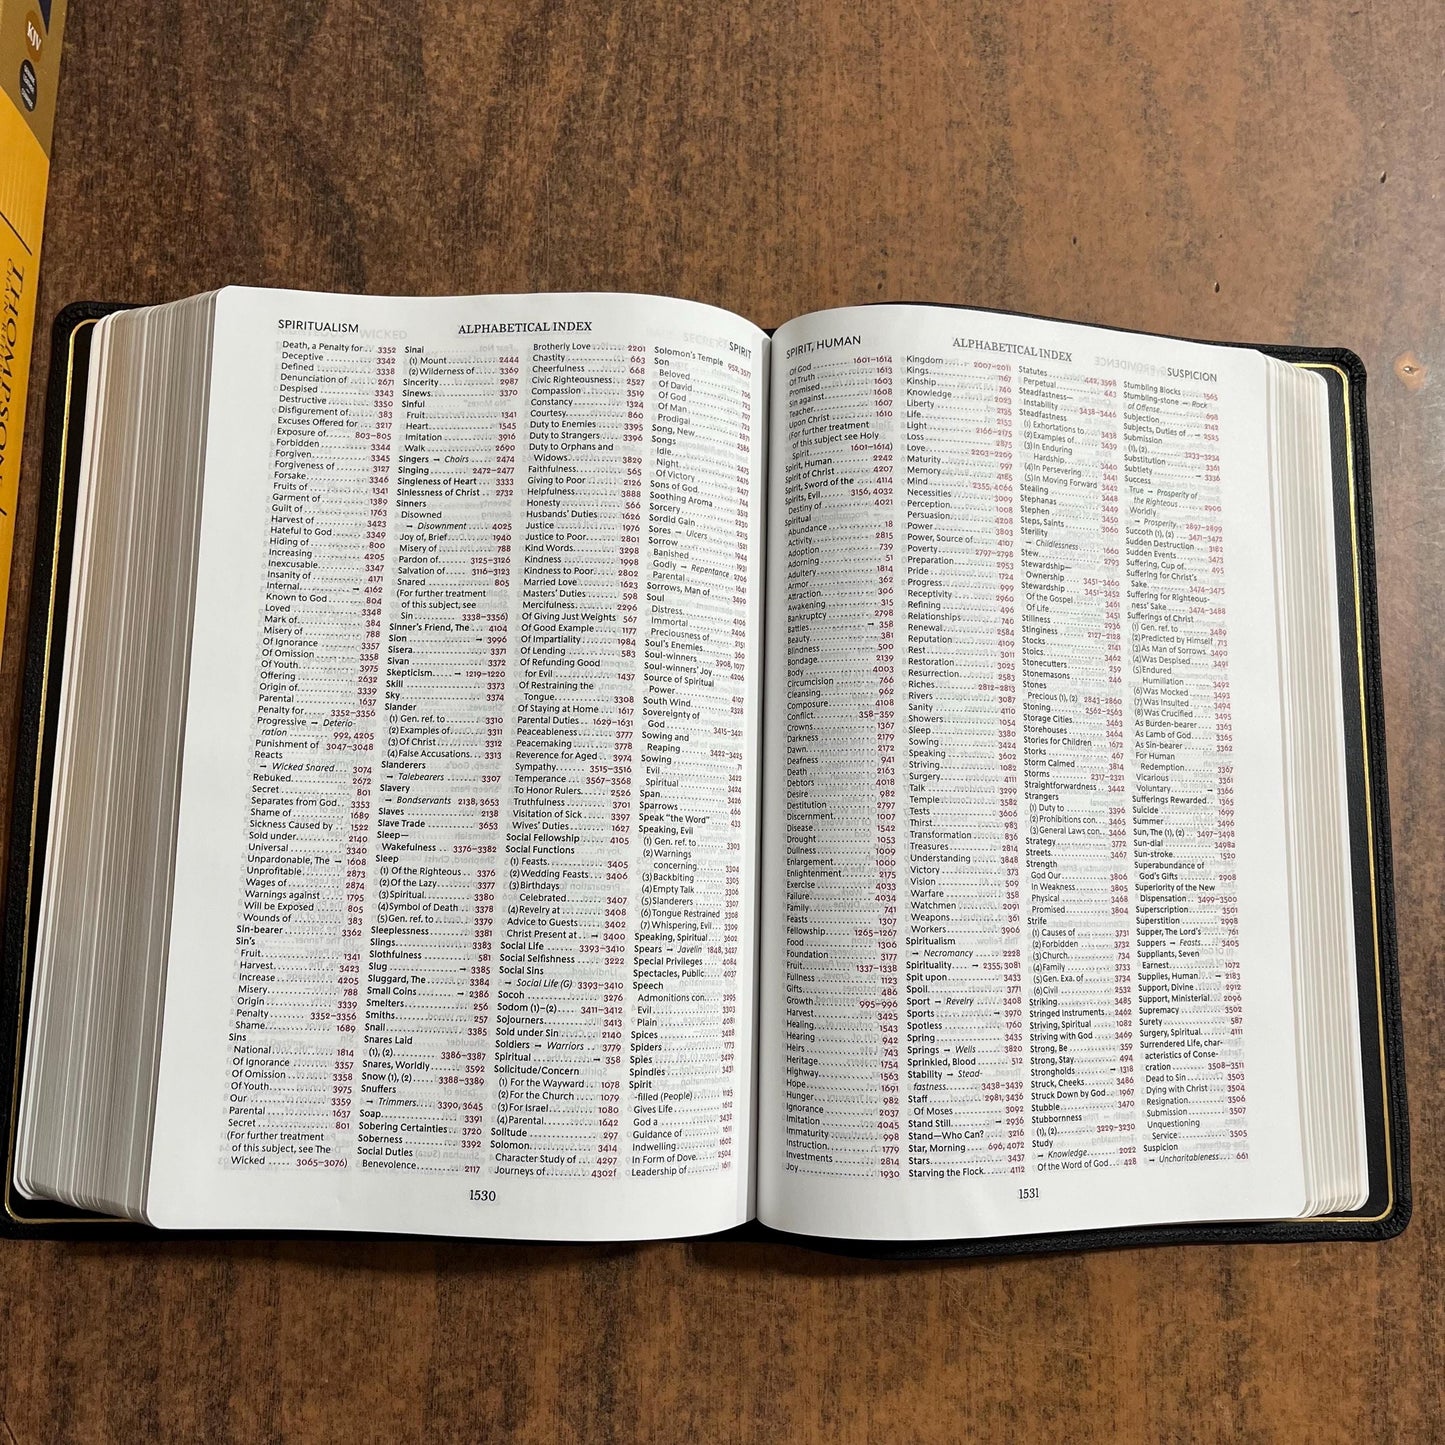 KJV
THOMPSON
SPIRITUALISM
ALPHABETICAL INDEX
SPIRIT
Death, a Penalty for 3352
Deceptive 3342
Defined 3338
Denunciation of 2671
Despised 3343
Destructive 3350
Disfigurement of 383
Excuses Offered for 3217
Exposure of 803–805
Forbidden 3344
Forgiven 3345
Forgiveness of 3127
Forsake 3346
Fruits of 1341
Garment of 1389
Guilt of 1763
Harvest of 3423
Hateful to God 3349
Hiding of 800
Increasing 4205
Inexcusable 3347
Insanity of 4171
Internal → 4162
Known to God 804
Loved 3348
Mark of 384
Misery of 788
Of Ignorance 3357
Of Omission 3358
Of Youth 3975
Offering 2632
Origin of 3339
Parental 1637
Penalty for 3352–3356
Progressive → Deterio-
ration 992, 4205
Punishment of 3047–3048
Reacts
→ Wicked Snared 3074
Rebuked 2672
Secret 801
Separates from God 3353
Shame of 1689
Sickness Caused by 1522
Sold under 2140
Universal 3340
Unpardonable, The → 1608
Unprofitable 2873
Wages of 2874
Warnings against 1795
Will be Exposed 805
Wounds of 383
Sin-bearer 3362
Sin's
Fruit 1341
Harvest 3423
Increase 4205
Misery 788
Origin 3339
Penalty 3352–3356
Shame 1689
Sins
National 1814
Of Ignorance 3357
Of Omission 3358
Of Youth 3975
Our 3359
Parental 1637
Secret 801
(For further treatment
of this subject, see The
Wicked 3065–3076)
Sinai
(1) Mount 2444
(2) Wilderness of 3369
Sincerity 2987
Sinews 3370
Sinful
Fruit 1341
Heart 1545
Imitation 3916
Walk 2690
Singers → Choirs 2474
Singing 2472–2477
Singleness of Heart 3333
Sinlessness of Christ 2732
Sinners
Disowned
→ Disownment 4025
Joy of, Brief 1940
Misery of 788
Pardon of 3125–3126
Salvation of 3116–3123
Snared 805
(For further treatment
of this subject, see
Sin 3338–3356)
Sinner's Friend, The 4104
Sion → 3996
Sisera 3371
Sivan 3372
Skepticism → 1219–1220
Skill 3373
Sky 3374
Slander
(1) Gen. ref. to 3310
(2) Examples of 3311
(3) Of Christ 3312
(4) False Accusations 3313
Slanderers
→ Talebearers 3307
Slavery
→ Bondservants 2138, 3653
Slaves 2138
Slave Trade 3653
Sleep—
Wakefulness 3376–3382
Sleep
(1) Of the Righteous 3376
(2) Of the Lazy 3377
(3) Spiritual 3380
(4) Symbol of Death 3378
(5) Gen. ref. to 3379
Sleeplessness 3381
Slings 3383
Slothfulness 581
Slug → 3385
Sluggard, The 3384
Small Coins → 2386
Smelters 256
Smiths 257
Snail 3385
Snares Laid
(1), (2) 3386–3387
Snares, Worldly 3592
Snow (1), (2) 3388–3389
Snuffers
→ Trimmers 3390, 3645
Soap 3391
Sobering Certainties 3720
Soberness 3392
Social Duties
Benevolence 2117
Brotherly Love 2201
Chastity 663
Cheerfulness 668
Civic Righteousness 2527
Compassion 3519
Constancy 1324
Courtesy 860
Duty to Enemies 3395
Duty to Strangers 3396
Duty to Orphans and
Widows 3829
Faithfulness 565
Giving to Poor 2126
Helpfulness 3888
Honesty 566
Husbands' Duties 1626
Justice 1976
Justice to Poor 2801
Kind Words 3298
Kindness 1998
Kindness to Poor 2802
Married Love 1623
Masters' Duties 598
Mercifulness 2296
Of Giving Just Weights 567
Of Good Example 1177
Of Impartiality 1984
Of Lending 583
Of Refunding Good
for Evil 1437
Of Restraining the
Tongue 3308
Of Staying at Home 1617
Parental Duties 1629–1631
Peaceableness 3777
Peacemaking 3778
Reverence for Aged 3974
Sympathy 3515–3516
Temperance 3567–3568
To Honor Rulers 2526
Truthfulness 3701
Visitation of Sick 3397
Wives' Duties 1627
Social Fellowship 4105
Social Functions
(1) Feasts 3405
(2) Wedding Feasts 3406
(3) Birthdays
Celebrated 3407
(4) Revelry at 3408
Advice to Guests 3402
Christ Present at → 3400
Social Life 3393–3410
Social Selfishness 3222
Social Sins
→ Social Life (G) 3393–3410
Socoh 3276
Sodom (1)–(2) 3411–3412
Sojourners 3413
Sold under Sin 2140
Soldiers → Warriors 3779
Spiritual → 358
Solicitude/Concern
(1) For the Wayward 1078
(2) For the Church 1079
(3) For Israel 1080
(4) Parental 1642
Solitude 297
Solomon 3414
Character Study of 4297
Journeys of 4302f
Solomon's Temple 959, 3577
Son
Beloved
Of David
Of God
Of Man
Prodigal
Song, New
Songs
Idle
Night
Of Victory
Sons of God
Soothing Aroma
Sorcery
Sordid Gain
Sores → Ulcers
Sorrow
Banished
Godly → Repentance 2706
Parental
Sorrows, Man of 3490
Soul
Distress
Immortal
Preciousness of
Soul's Enemies
Soul-winners 3908, 1077
Soul-winners' Joy 4206
Source of Spiritual
Power 4107
South Wind 2328
Sovereignty of
God 3415–3421
Sowing and
Reaping 3422–3425
Sowing 71
Evil 3422
Spiritual 3424
Span 3426
Sparrows 466
Speak “the Word” 433
Speaking, Evil
(1) Gen. ref. to 3303
(2) Warnings
concerning 3304
(3) Backbiting 3305
(4) Empty Talk 3306
(5) Slanderers 3307
(6) Tongue Restrained 3308
(7) Whispering, Evil 3309
Speaking, Spiritual 3602
Spears → Javelin 1848, 3427
Special Privileges 4084
Spectacles, Public 4037
Speech
Admonitions con. 3295
Evil 3303
Plain 4081
Spices 3428
Spiders 1773
Spies 3429
Spindles 3431
Spirit
-filled (People) 1125
Gives Life 1612
God a 3432
Guidance of 1611
Indwelling 1602
In Form of Dove 2504
Leadership of 1611
1530
SPIRIT, HUMAN
ALPHABETICAL INDEX
SUSPICION
Of God 1601–1614
Of Truth 1613
Promised 1603
Sin against 1608
Teacher 1607
Upon Christ 1610
(For further treatment
of this subject see Holy
Spirit 1601–1614)
Spirit, Human 2242
Spirit of Christ 4207
Spirit, Sword of the 4114
Spirits, Evil 3156, 4032
Destiny of 4021
Spiritual
Abundance 18
Activity 2815
Adoption 739
Adorning 51
Adultery 1814
Armor 362
Attraction 306
Awakening 315
Bankruptcy 2798
Battles → 358
Beauty 381
Blindness 500
Bondage 2139
Body 4003
Circumcision 766
Cleansing 962
Composure 4108
Conflict 358–359
Crowns 1367
Darkness 2179
Dawn 2172
Deafness 941
Death 2163
Debtors 4018
Desire 982
Destitution 2797
Discernment 1007
Disease 1542
Drought 1053
Dullness 1009
Enlargement 1000
Enlightenment 2175
Exercise 4033
Failure 4034
Family 741
Feasts 1307
Fellowship 1265–1267
Food 1306
Foundation 3177
Fruit 1337–1338
Fullness 1123
Gifts 486
Growth 995–996
Harvest 3425
Healing 1543
Hearing 942
Heirs 743
Heritage 1754
Highway 1563
Hope 1691
Hunger 982
Ignorance 2037
Imitation 4045
Immaturity 998
Instruction 1779
Investments 2814
Joy 1930
Kingdom 2007–2011
Kings 1167
Kinship 746
Knowledge 2023
Liberty 2135
Life 2153
Light 2166–2175
Loss 2875
Love 2203–2209
Maturity 997
Memory 4185
Mind 2355, 4066
Necessities 3009
Perception 1008
Persuasion 4208
Power 3803
Power, Source of 4107
Poverty 2797–2798
Preparation 2953
Pride 1724
Progress 999
Receptivity 2966
Refining 496
Relationships 740
Renewal 2584
Reputation 4109
Rest 3011
Restoration 3025
Resurrection 2583
Riches 2812–2813
Rivers 3087
Sanity 4110
Showers 1054
Sleep 3380
Sowing 3424
Speaking 3602
Striving 1082
Surgery 4111
Talk 3299
Temple 3582
Tests 3606
Thirst 983
Transformation 836
Treasures 2814
Understanding 3848
Victory 373
Vision 509
Warfare 358
Watchmen 2091
Weapons 361
Workers 3906
Spiritualism
→ Necromancy 2228
Spirituality → 2355, 3081
Spit upon 3433
Spoil 3771
Sport → Revelry 3408
Sports → 3970
Spotless 1760
Spring 3435
Springs → Wells 3820
Sprinkled, Blood 512
Stability → Stead-
fastness 3438–3439
Staff 2981, 3436
Of Moses 3092
Stand Still 2936
Stand—Who Can? 3216
Star, Morning 696, 4072
Stars 3437
Starving the Flock 4112
Statutes 442, 3598
Perpetual 443
Steadfastness—
Instability 3438–3446
Steadfastness
(1) Exhortations to 3438
(2) Examples of 3439
(3) In Enduring
Hardship
(4) In Persevering 3440
(5) In Moving Forward 3442
Stealing 3448
Stephanas 3448
Stephen 3449
Steps, Saints 3450
Sterility 3060
→ Childlessness
Stew 1660
Stewardship— 2793
Ownership 3451–3460
Stewardship 3451–3452
Of the Gospel 3461
Of Life 3451
Stillness 2936
Stinginess 2127–2128
Stocks 3141
Stoics 239
Stonecutters 259
Stonemasons 246
Stones
Precious (1), (2) 2843–2860
Stoning 2562–2563
Storage Cities 3463
Storehouses 3464
Stories for Children 1672
Storks 467
Storm Calmed 3814
Storms 2317–2321
Straightforwardness 3442
Strangers
(1) Duty to 3396
(2) Prohibitions con. 3465
(3) General Laws con. 3466
Strategy 3772
Streets 3467
Strength
God Our 3806
In Weakness 3805
Physical 3468
Promised 3804
Strife
(1) Causes of 3731
(2) Forbidden 3732
(3) Church 734
(4) Family 3733
(5) Gen. Exa. of 3734
(6) Civil 2532
Striking 3485
Stringed Instruments 2462
Striving, Spiritual 1082
Striving with God 3469
Strong, Be 359
Strong, Stay 494
Strongholds → 1318
Struck, Cheeks 3486
Struck Down by God 1967
Stubble 3470
Stubbornness
(1), (2) 3229–3230
Study
→ Knowledge 2022
Of the Word of God 428
Stumbling Blocks 1565
Stumbling-stone → Rock
of Offense 698
Subjection 2142
Subjects, Duties of → 2525
Submission
(1), (2) 3233–3234
Substitution 3361
Subtlety
Success
True → Prosperity of
the Righteous 2900
Worldly
→ Prosperity 2897–2899
Succoth (1), (2) 3471–3472
Sudden Destruction 3182
Sudden Events 3473
Suffering, Cup of 493
Suffering for Christ's
Sake 3474–3475
Suffering for Righteous-
ness' Sake 3474–3488
Sufferings of Christ
(1) Gen. ref. to 3489
(2) Predicted by Himself 713
(3) As Man of Sorrows 3490
(4) Was Despised 3491
(5) Endured
Humiliation 3492
(6) Was Mocked 3493
(7) Was Insulted 3494
(8) Was Crucified 3495
As Burden-bearer 3361
As Lamb of God 3365
As Sin-bearer 3362
For Human
Redemption 3367
Vicarious 3361
Voluntary → 3366
Sufferings Rewarded 1365
Suicide 1699
Summer 3496
Sun, The (1), (2) 3497–3498
Sun-dial 3498a
Sun-stroke 1520
Superabundance of
God's Gifts 2908
Superiority of the New
Dispensation 3499–3500
Superscription 3501
Superstition 2998
Supper, The Lord's 761
Suppers → Feasts 3405
Suppliants, Seven
Earnest 1072
Supplies, Human → 2183
Support, Divine 2912
Support, Ministerial 2096
Supremacy 3502
Surety 587
Surgery, Spiritual 4111
Surrendered Life, char-
acteristics of Conse-
cration 3508–3511
Dead to Sin 3503
Dying with Christ 3504
Resignation 3506
Submission 3507
Unquestioning
Service 3505
Suspicion
→ Uncharitableness 661
1531